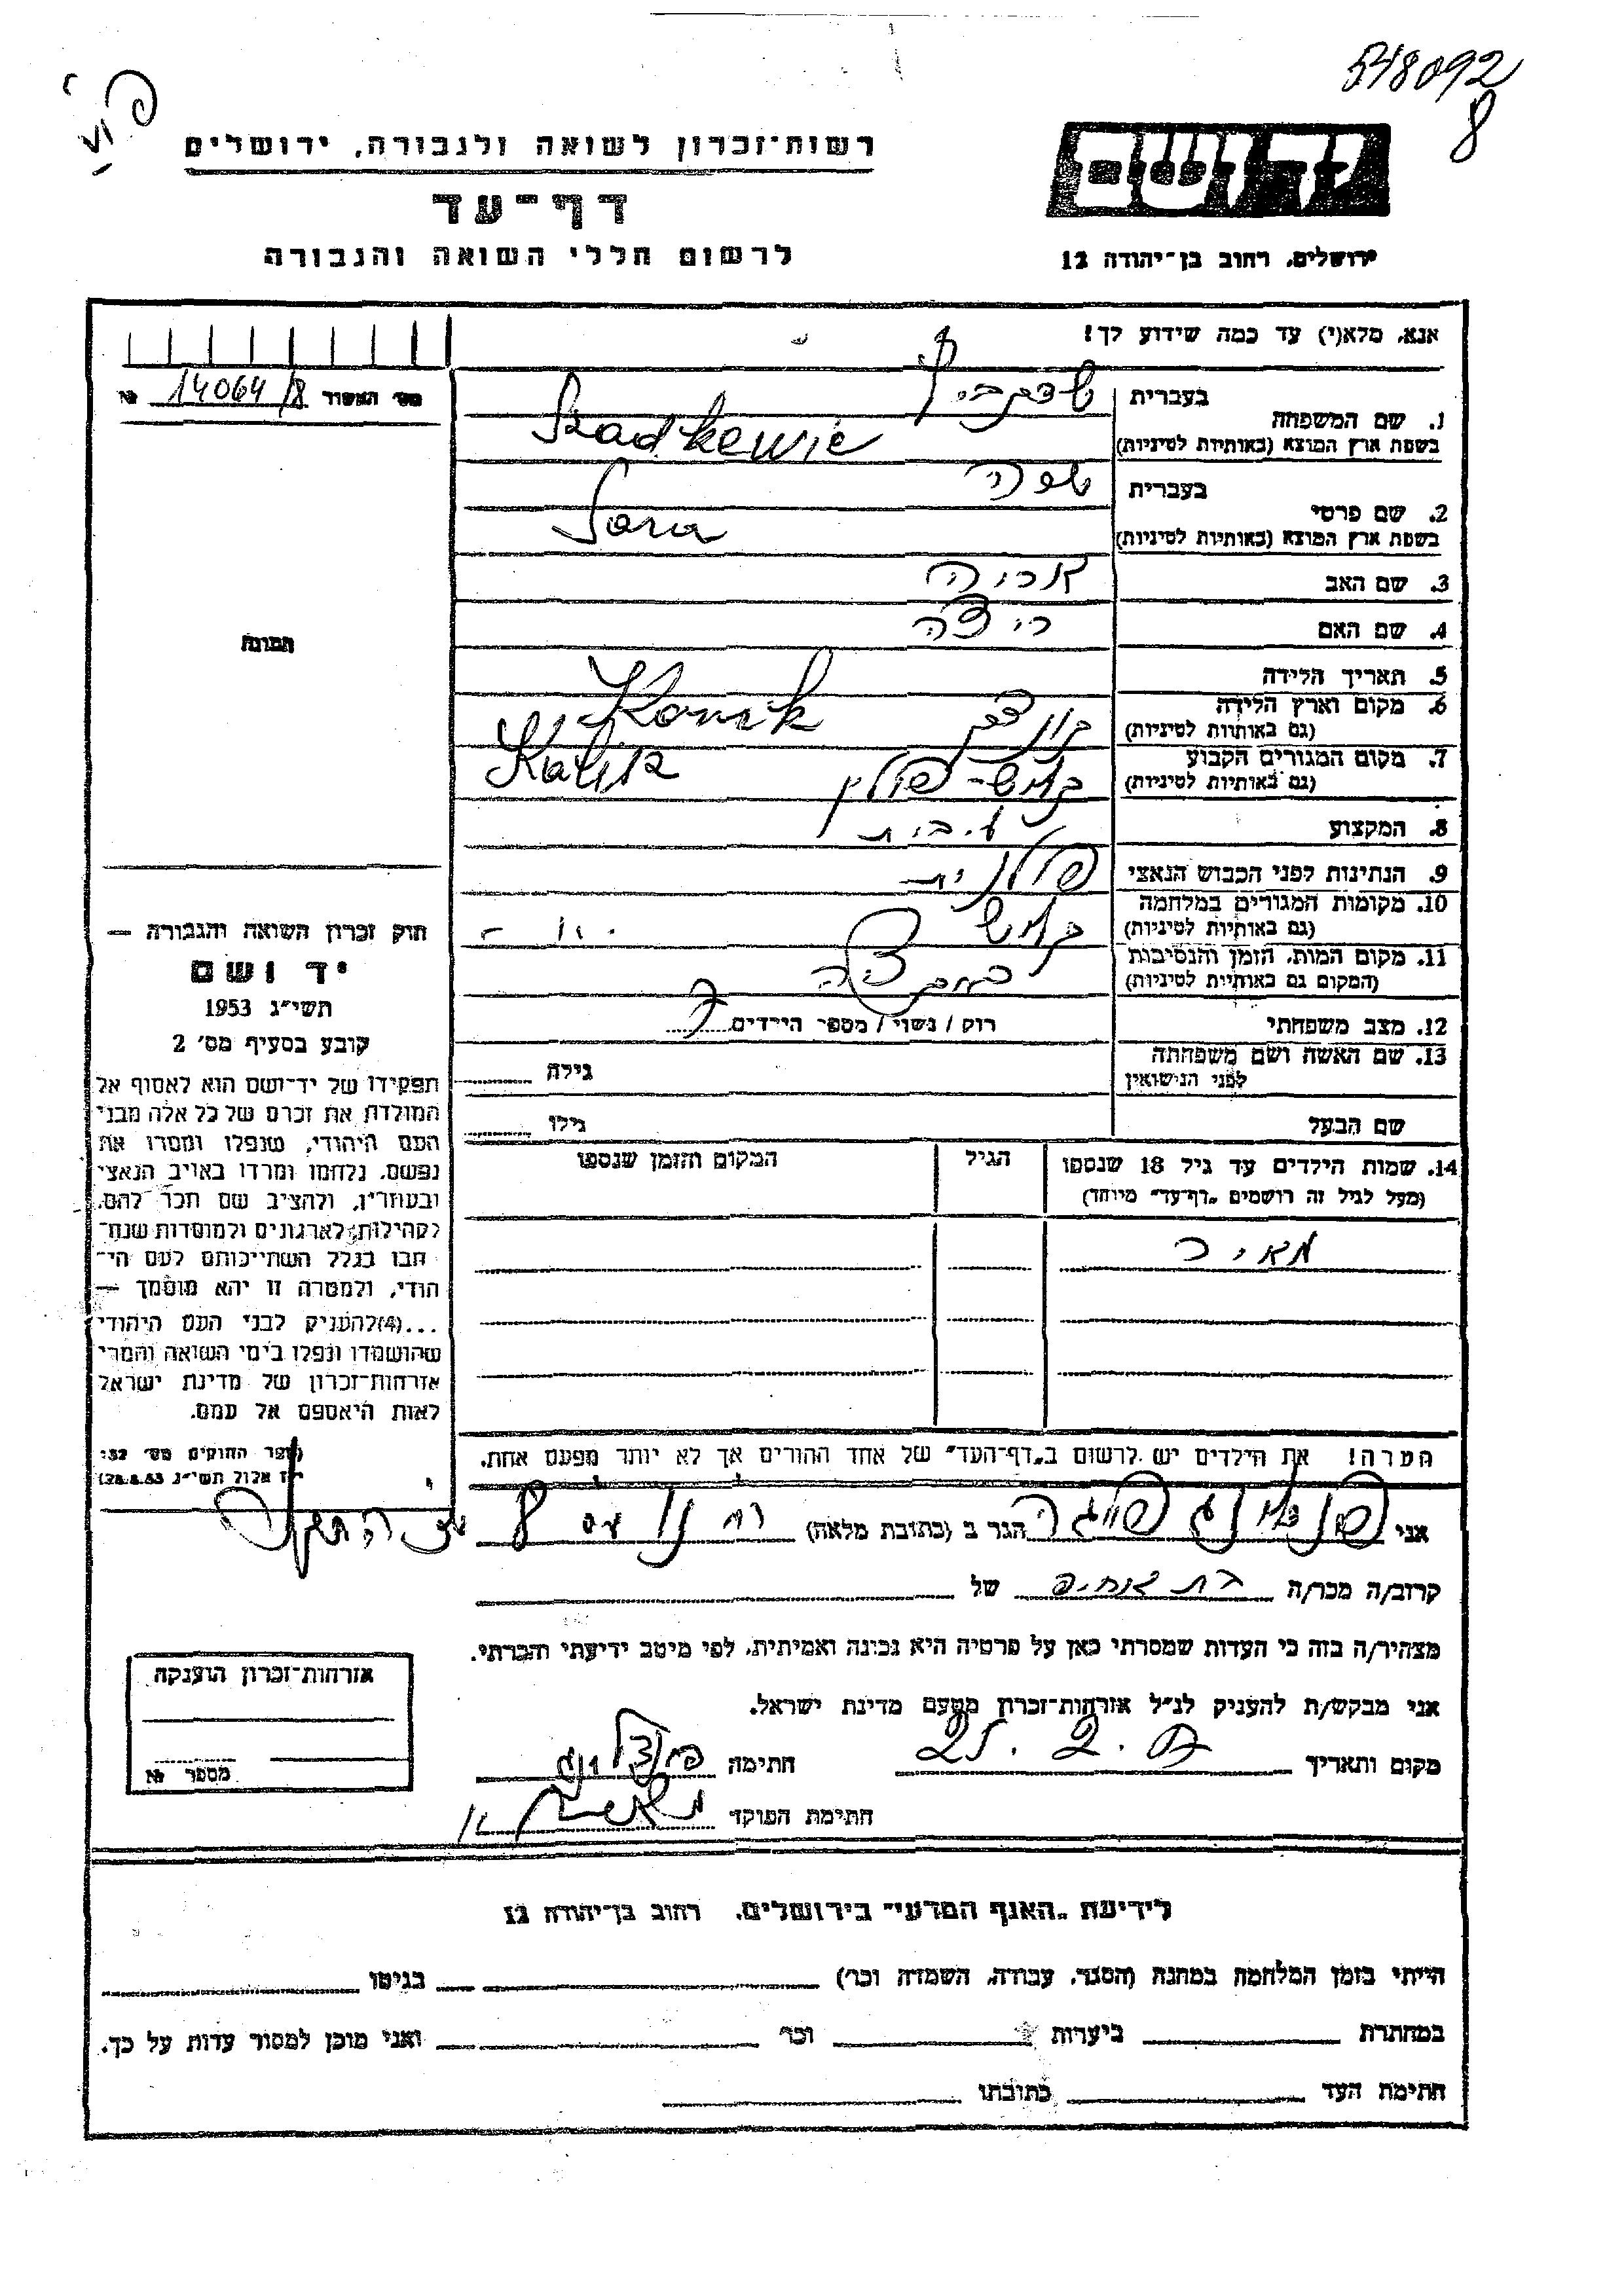 548092
8
רשות־זכרון לשואה ולגבורה, ירושלים
דף־עד
לרשום חללי השואה והגבורה
יד ושם
ירושלים, רחוב בן־יהודה 12
אנא, מלא(י) עד כמה שידוע לך!
מס׳ האשור 14064/8 №
1. שם המשפחה
בעברית
בשפת ארץ המוצא (באותיות לטיניות) Szadkewic
2. שם פרטי
בעברית שרה
בשפת ארץ המוצא (באותיות לטיניות) Sara
3. שם האב אריה
4. שם האם
5. תאריך הלידה
6. מקום וארץ הלידה
(גם באותיות לטיניות)
7. מקום המגורים הקבוע קליש - פולין Kalisz
(גם באותיות לטיניות)
8. המקצוע
9. הנתינות לפני הכבוש הנאצי פולנית
10. מקומות המגורים במלחמה קליש
(גם באותיות לטיניות)
11. מקום המות, הזמן והנסיבות
(המקום גם באותיות לטיניות)
12. מצב משפחתי רווק / נשוי / מספר הילדים
13. שם האשה ושם משפחתה גילה
לפני הנישואין
שם הבעל גילו
14. שמות הילדים עד גיל 18 שנספו הגיל המקום והזמן שנספו
(מעל לגיל זה רושמים „דף־עד" מיוחד)
מאיר
הערה! את הילדים יש לרשום ב„דף־העד" של אחד ההורים אך לא יותר מפעם אחת.
תמונה
חוק זכרון השואה והגבורה —
יד ושם
תשי״ג 1953
קובע בסעיף מס׳ 2
תפקידו של יד־ושם הוא לאסוף אל
המולדת את זכרם של כל אלה מבני
העם היהודי, שנפלו ומסרו את
נפשם, נלחמו ומרדו באויב הנאצי
ובעוזריו, ולהציב שם וזכר להם,
לקהילות, לארגונים ולמוסדות שנח־
רבו בגלל השתייכותם לעם הי־
הודי, ולמטרה זו יהא מוסמך —
...(4) להעניק לבני העם היהודי
שהושמדו ונפלו בימי השואה והמרי
אזרחות־זכרון של מדינת ישראל
לאות היאספם אל עמם.
(ספר החוקים מס׳ 132
י״ז אלול תשי״ג 28.8.53)
אני הגר ב (כתובת מלאה) 8
קרוב/ה מכר/ה בת אחים של
מצהיר/ה בזה כי העדות שמסרתי כאן על פרטיה היא נכונה ואמיתית, לפי מיטב ידיעתי והכרתי.
אני מבקש/ת להעניק לנ״ל אזרחות־זכרון מטעם מדינת ישראל.
מקום ותאריך חתימה
חתימת הפוקד
אזרחות־זכרון הוענקה
מספר №
לידיעת „האגף המדעי" בירושלים, רחוב בן־יהודה 12
הייתי בזמן המלחמה במחנה (הסגר, עבודה, השמדה וכו׳) בגיטו
במחתרת ביערות וכו׳ ואני מוכן למסור עדות על כך.
חתימת העד כתובתו